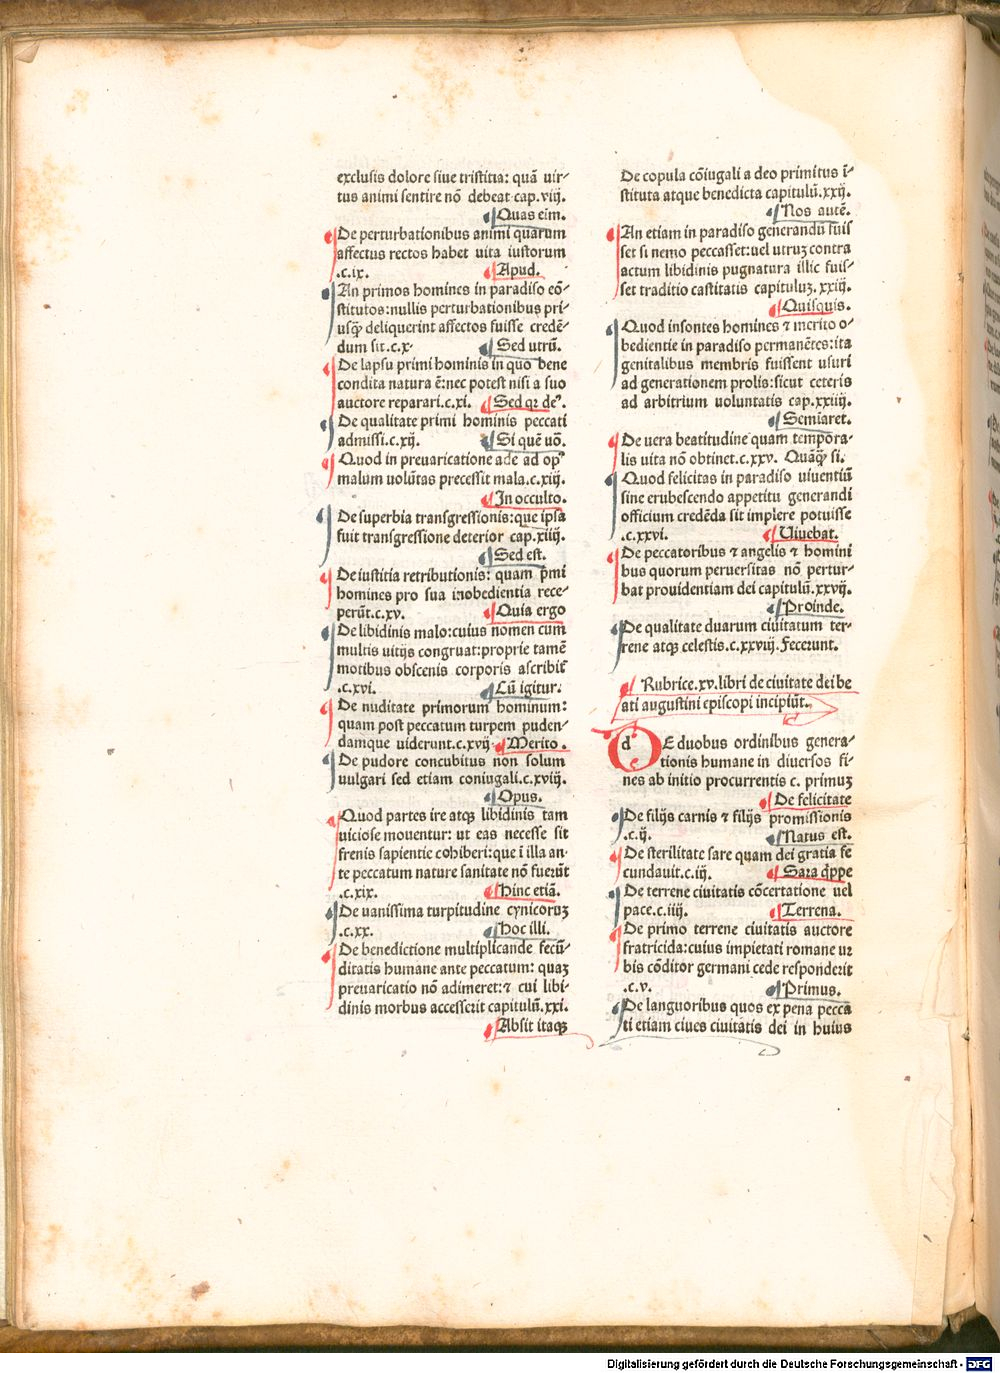 exclusis dolore siue tristitia: quā uir⸗
tus animi sentire nō debeat cap.viij.
Quas eīm.
De perturbationibus animi quarum
affectus rectos habet uita iustorum
.c.ix. Apud.
An primos homines in paradiso cō⸗
stitutos:nullis perturbationibus pri⸗
usq̄ deliquerint affectos fuisse credē⸗
dum sit.c.x. Sed utrū.
De lapsu primi hominis in quo bene
condita natura ē:nec potest nisi a suo
auctore reparari.c.xi. Sed qꝛ deꝰ.
De qualitate primi hominis peccati
admissi.c.xij. Si quē uō.
Quod in preuaricatione ade ad opꝰ
malum uolūtas precessit mala.c.xiij.
In occulto.
De superbia transgressionis:que ipsa
fuit transgressione deterior cap.xiiij.
Sed est.
De iustitia retributionis: quam p̄mi
homines pro sua inobedientia rece⸗
perūt.c.xv. Quia ergo
De libidinis malo:cuius nomen cum
multis uitijs congruat:proprie tamē
motibus obscenis corporis ascribit̄
.c.xvi. Cū igitur.
De nuditate primorum hominum:
quam post peccatum turpem puden⸗
damque uiderunt.c.xvij. Merito.
De pudore concubitus non solum
uulgari sed etiam coniugali.c.xviij.
Opus.
Quod partes ire atqꝫ libidinis tam
uiciose mouentur: ut eas necesse sit
frenis sapientie cohiberi:que ī illa an⸗
te peccatum nature sanitate nō fuerūt
.c.xix. Hinc etiā.
De uanissima turpitudine cynicoꝝ
.c.xx. Hoc illi.
De benedictione multiplicande fecū⸗
ditatis humane ante peccatum: quaꝫ
preuaricatio nō adimeret:⁊ cui libi⸗
dinis morbus accesserit capitulū.xxi.
Absit itaqꝫ
De copula cōiugali a deo primitus ī⸗
stituta atque benedicta capitulū.xxij.
Nos autē.
An etiam in paradiso generandū fuis
set si nemo peccasset:uel utruꝫ contra
actum libidinis pugnatura illic fuis⸗
set traditio castitatis capituluꝫ.xxiij.
Quisquis.
Quod insontes homines ⁊ merito o⸗
bedientie in paradiso permanētes:ita
genitalibus membris fuissent usuri
ad generationem prolis:sicut ceteris
ad arbitrium uoluntatis cap.xxiiij.
Semiaret.
De uera beatitudine quam tempora⸗
lis uita nō obtinet.c.xxv. Quāq̄ si.
Quod felicitas in paradiso uiuentiū
sine erubescendo appetitu generandi
officium credēda sit implere potuisse
.c.xxvi. Uiuebat.
De peccatoribus ⁊ angelis ⁊ homini
bus quorum peruersitas nō pertur⸗
bat prouidentiam dei capitulū.xxvij.
Proinde.
De qualitate duarum ciuitatum ter⸗
rene atqꝫ celestis.c.xxviij. Fecerunt.
Rubrice.xv.libri de ciuitate dei be
ati augustini episcopi incipiūt.
dE duobus ordinibus genera⸗
tionis humane in diuersos fi⸗
nes ab initio procurrentis c. primuꝫ
De felicitate
De filijs carnis ⁊ filijs promissionis
.c.ij. Natus est.
De sterilitate sare quam dei gratia fe
cundauit.c.iij. Sara q̄ppe
De terrene ciuitatis cōcertatione uel
pace.c.iiij. Terrena.
De primo terrene ciuitatis auctore
fratricida:cuius impietati romane ur
bis cōditor germani cede responderit
.c.v. Primus.
De languoribus quos ex pena pecca
ti etiam ciues ciuitatis dei in huius
Digitalisierung gefördert durch die Deutsche Forschungsgemeinschaft - DFG